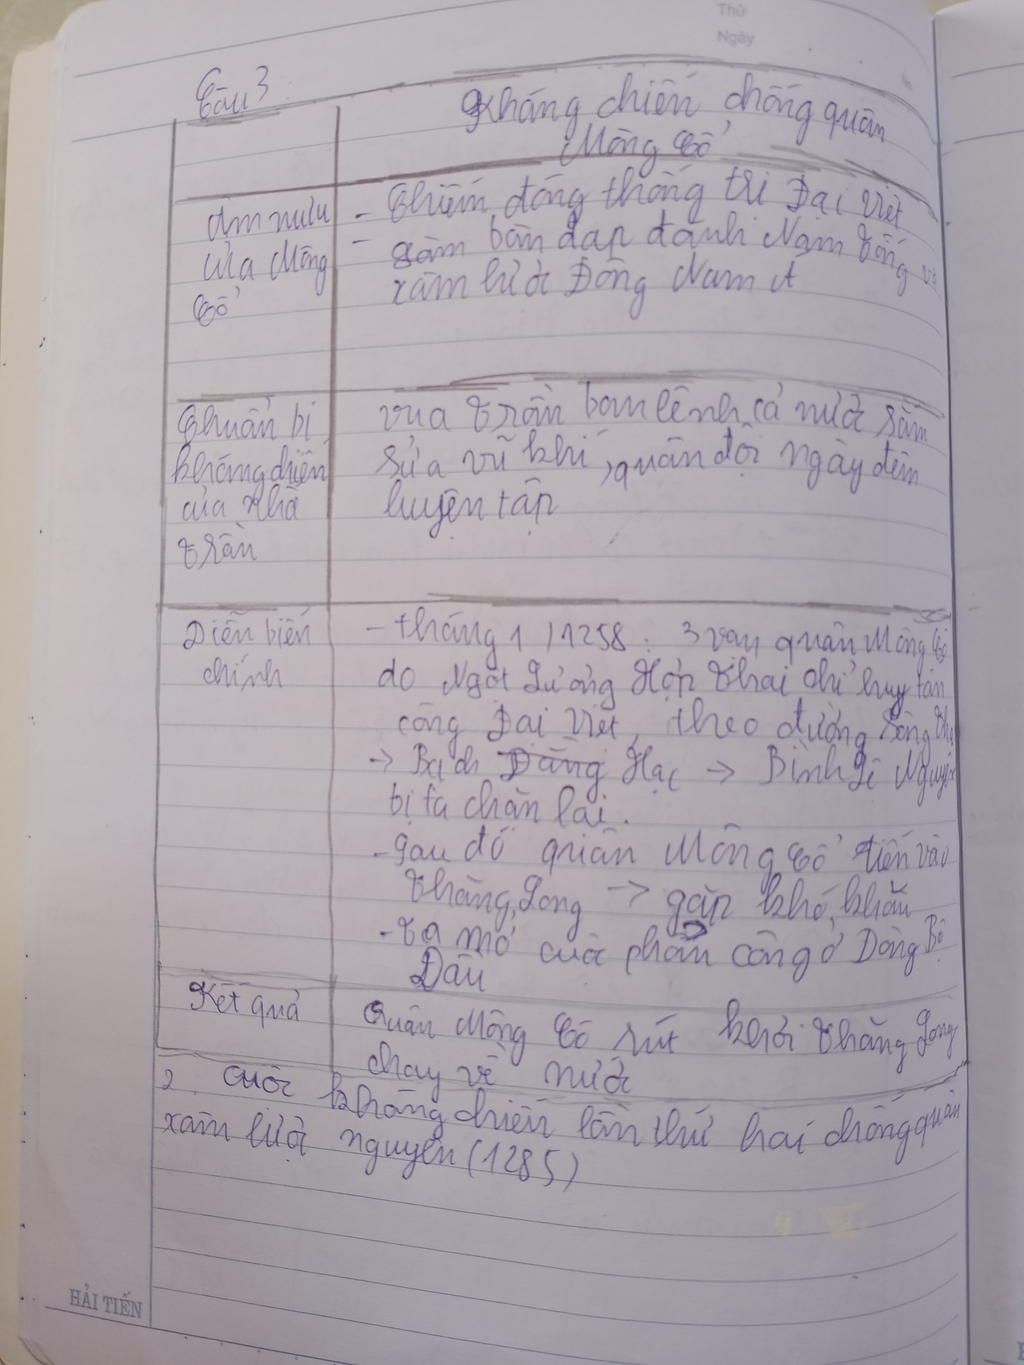 Thứ
Ngày
Câu 3
Kháng chiến chống quân
Mông Cổ
Âm mưu
của Mông
Cổ
- Chiếm đóng thống trị Đại Việt
- Làm bàn đạp đánh Nam Tống và
xâm lược Đông Nam Á
Chuẩn bị
kháng chiến
của nhà
Trần
vua Trần ban lệnh cả nước sắm
sửa vũ khí, quân đội ngày đêm
luyện tập
Diễn biến
chính
- tháng 1/1258: 3 vạn quân Mông Cổ
do Ngột Lương Hợp Thai chỉ huy tấn
công Đại Việt, theo đường sông
→ Bạch Hạc → Bình Lệ Nguyên
bị ta chặn lại.
- Sau đó quân Mông Cổ tiến vào
Thăng Long → gặp khó khăn
- Ta mở cuộc phản công ở Đông Bộ
Đầu
Kết quả
Quân Mông Cổ rút khỏi Thăng Long
chạy về nước
2. Cuộc kháng chiến lần thứ hai chống quân
xâm lược nguyên (1285)
HẢI TIẾN